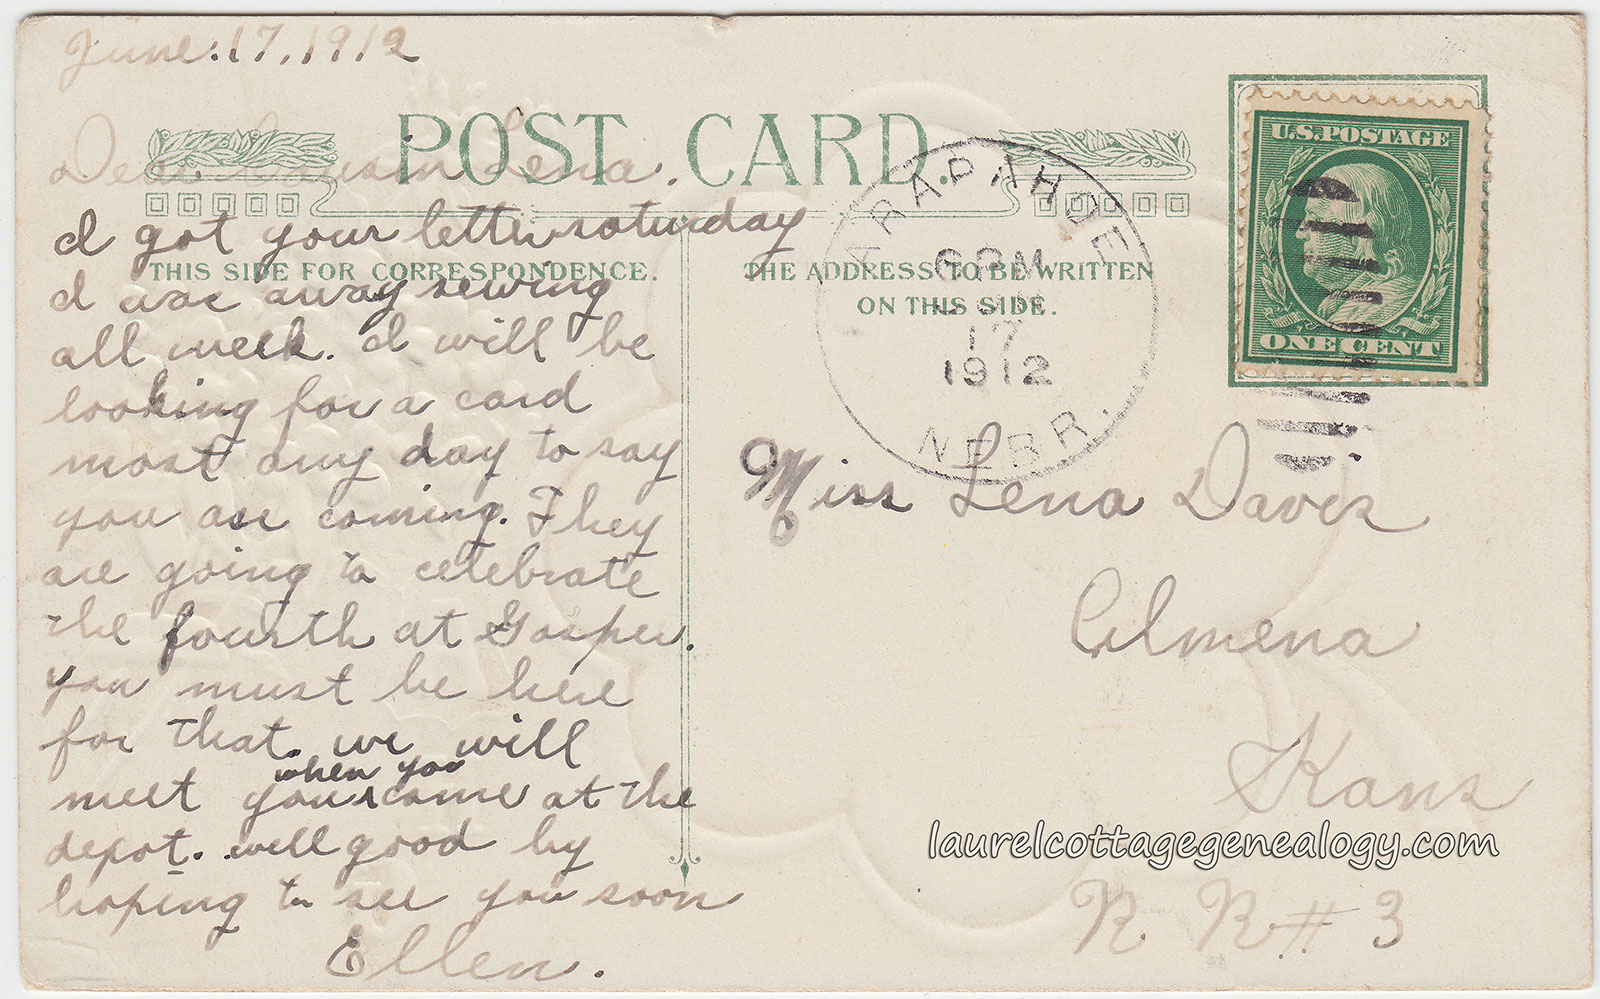 June. 17, 1912
Dear Cousin Lena.
I got your letter saturday
I was away sewing
all week. I will be
looking for a card
most any day to say
you are coming. They
are going to celebrate
the fourth at Gosper.
you must be here
for that. we will
meet you when you come at the
depot. well good by
hoping to see you soon
Ellen.
POST CARD.
THIS SIDE FOR CORRESPONDENCE.
THE ADDRESS TO BE WRITTEN
ON THIS SIDE.
ARAPAHOE
6 PM
17
1912
NEBR.
U.S. POSTAGE
ONE CENT
Miss Lena Davis
Almena
Kans
R. R # 3
laurelcottagegenealogy.com